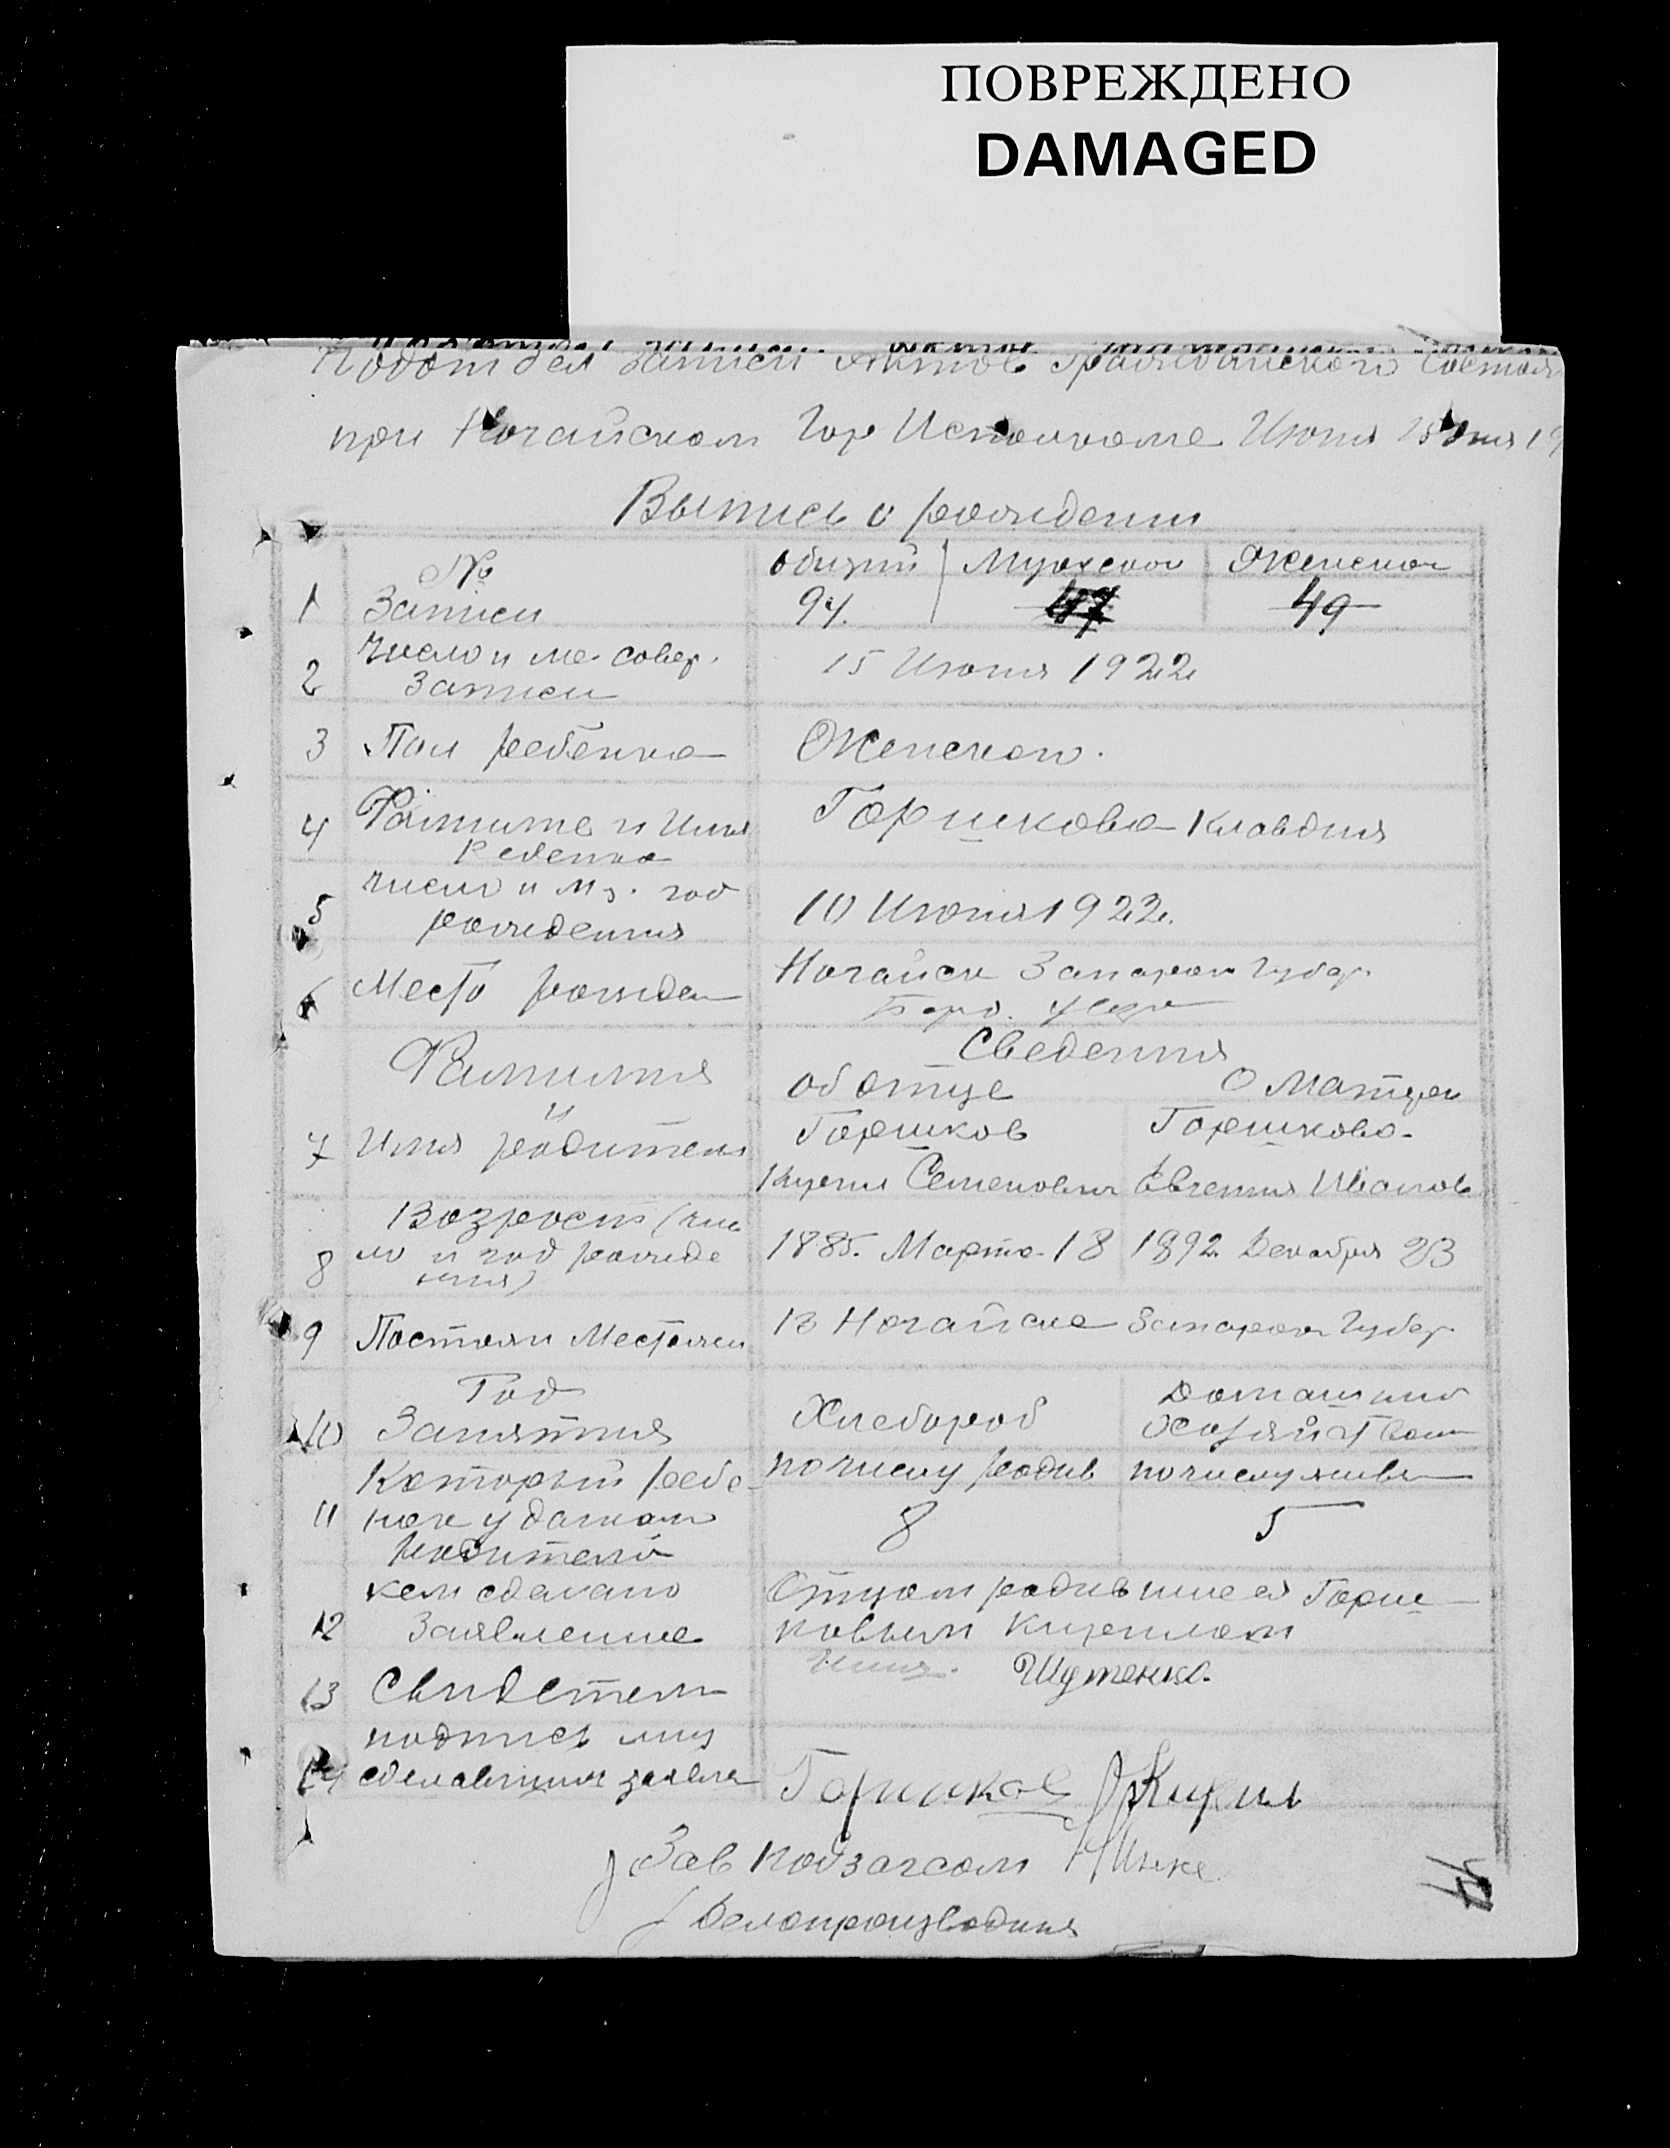 ПОВРЕЖДЕНО
DAMAGED
Подотдел Записи Актов Гражданского Состоя
при Ногайском Гор Исполкоме Июня 15 дня 19
Выпись о рождении
№ Общий Мужской Женской
1 Записи 94. 47 49
2 Число и ме. совер. Записи 15 Июня 1922
3 Пол ребенка Женской.
4 Фамилие и Имя Ребенка Горшкова Клавдия
5 число и мц. год рождения 10 Июня 1922.
6 Место рожден Ногайск Запорож Губер.
Берд. уезда
Фамилия Сведения
и об отце О Матери
7 Имя родителя Горшков Горшкова.
Кирил Семенович Евгения Иванов
8 Возрост (чис
ло и год рожде
ния) 1885. Марта 18 1892. Декабря 23
9 Постоян Местожи В Ногайске Запорож Губер.
Год
10 Занятия Хлебороб Домашнив
Хозяйством
Который ребе по числу родив по числу живы
11 нок у даннои 8 5
родителей
кем сделано Отцом родившиеся Горш
12 Заявление ковым Кирилом
13 Свидетели Шутенко.
подпись лиц
14 сделавших заявле Горшков Кирил
Зав Подзагсом
Делопроизводит